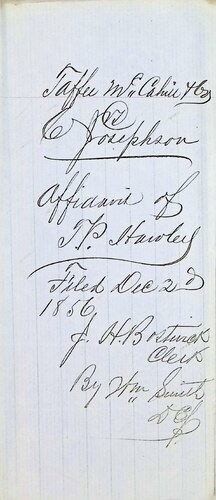 Taffee McCahill & Co
vs
C Josephson
Affidavit of
T.P. Hawley
Filed Dec 2d
1856
J. H. Bostwick
Clerk
By Wm Smith
D C